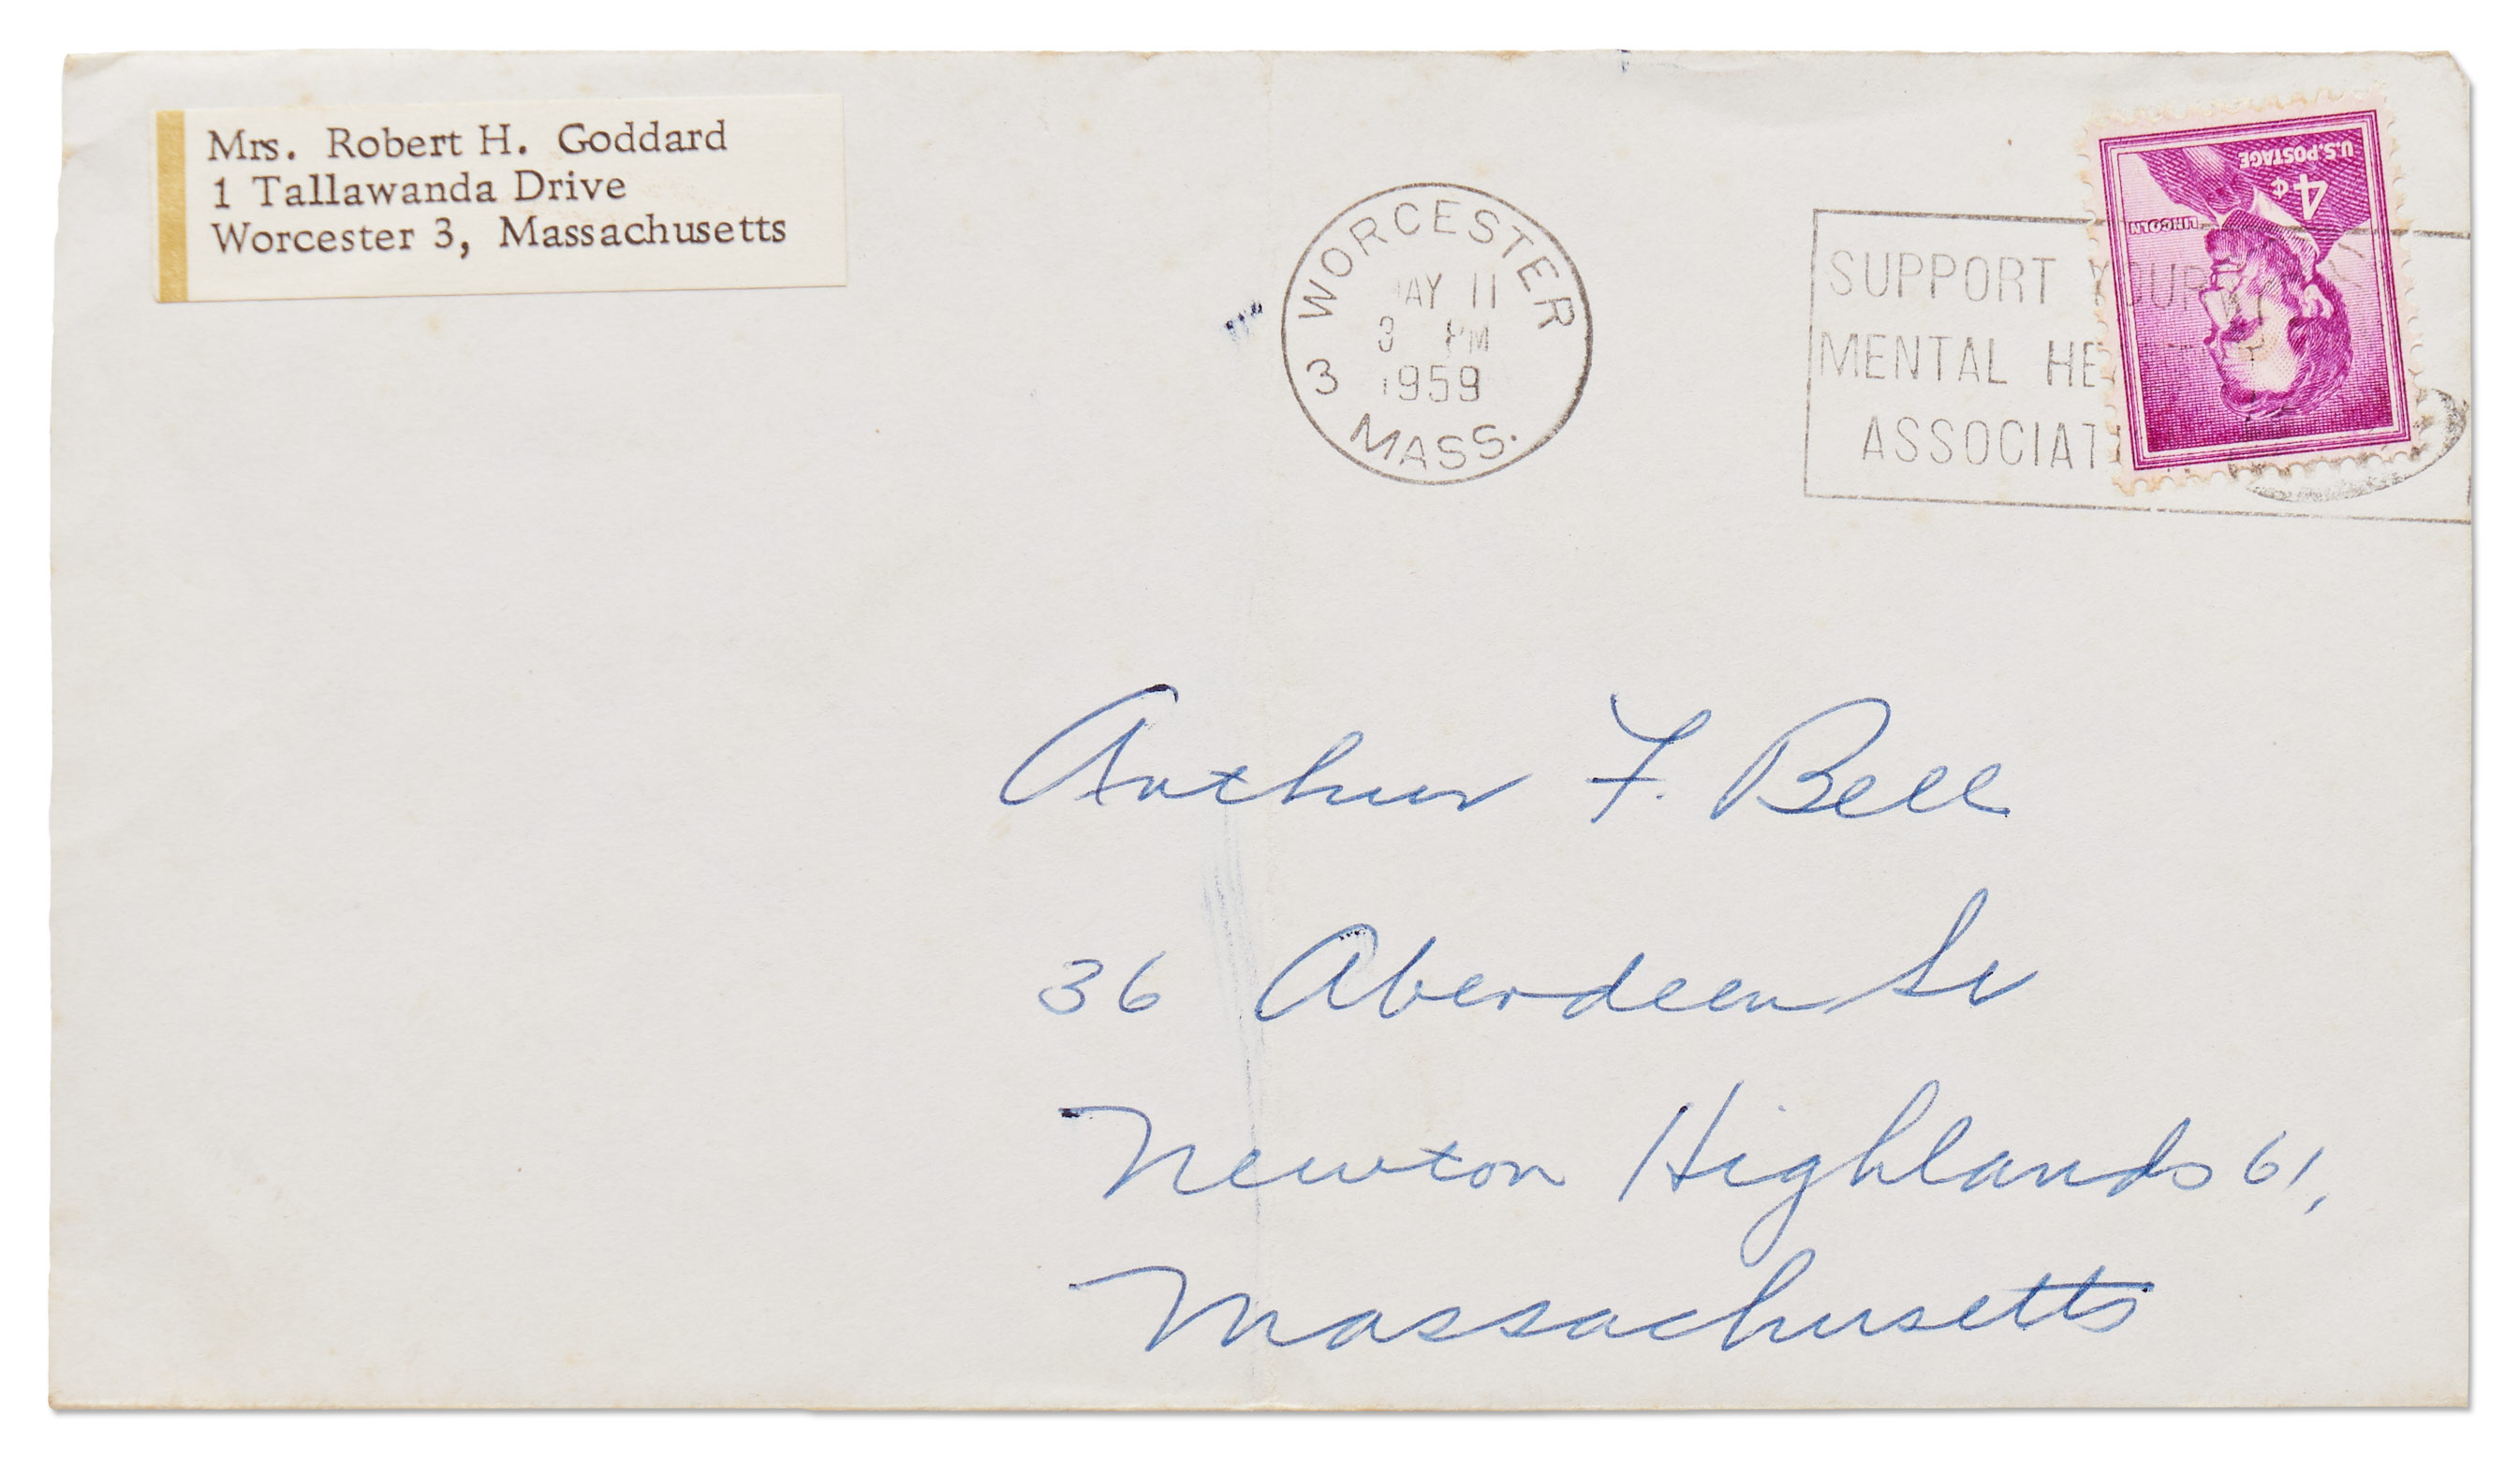 Mrs. Robert H. Goddard
1 Tallawanda Drive
Worcester 3, Massachusetts
WORCESTER
AY 11
3 PM
1959
3
MASS.
SUPPORT YOUR
MENTAL HE
ASSOCIAT
U.S.POSTAGE
4¢
LINCOLN
Arthur F. Bell
36 Aberdeen St
Newton Highlands 61,
Massachusetts